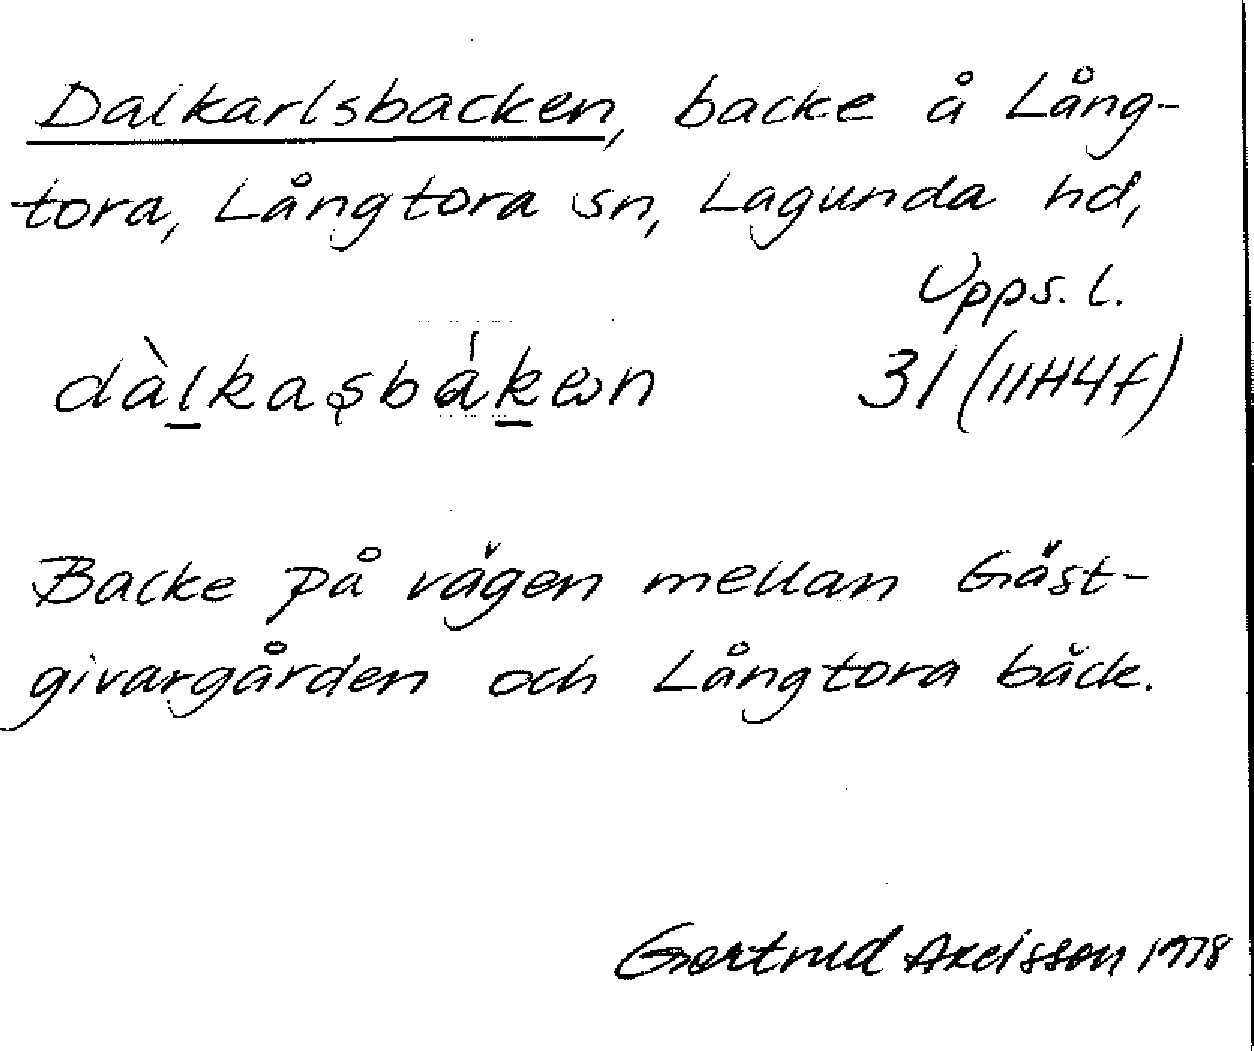 Dalkarlsbacken, backe å Lång-
tora, Långtora sn, Lagunda hd,
Upps. l.
dàl̠kaşbák̠ 31 (11H4f)
Backe på vägen mellan Gäst-
givargården och Långtora bäck.
Gertrud Axelsson 1978